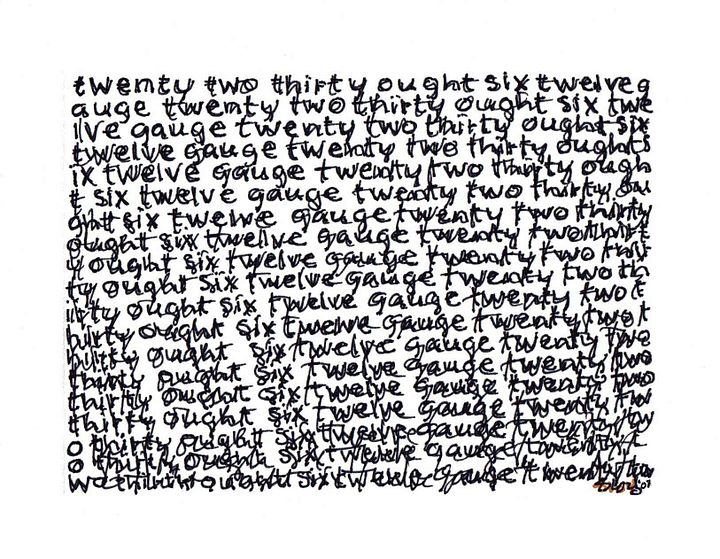 twenty two thirty ought six twelve g
auge twenty two thirty ought six twe
lve gauge twenty two thirty ought six
twelve gauge twenty two thirty ought s
ix twelve gauge twenty two thirty ough
t six twelve gauge twenty two thirty ou
ght six twelve gauge twenty two thirty
ought six twelve gauge twenty two thirt
y ought six twelve gauge twenty two thir
ty ought six twelve gauge twenty two th
irty ought six twelve gauge twenty two t
hirty ought six twelve gauge twenty two t
hirty ought six twelve gauge twenty two
thirty ought six twelve gauge twenty two
thirty ought six twelve gauge twenty two
thirty ought six twelve gauge twenty tw
o thirty ought six twelve gauge twenty tw
o thirty ought six twelve gauge twenty t
wo thirty ought six twelve gauge twenty two